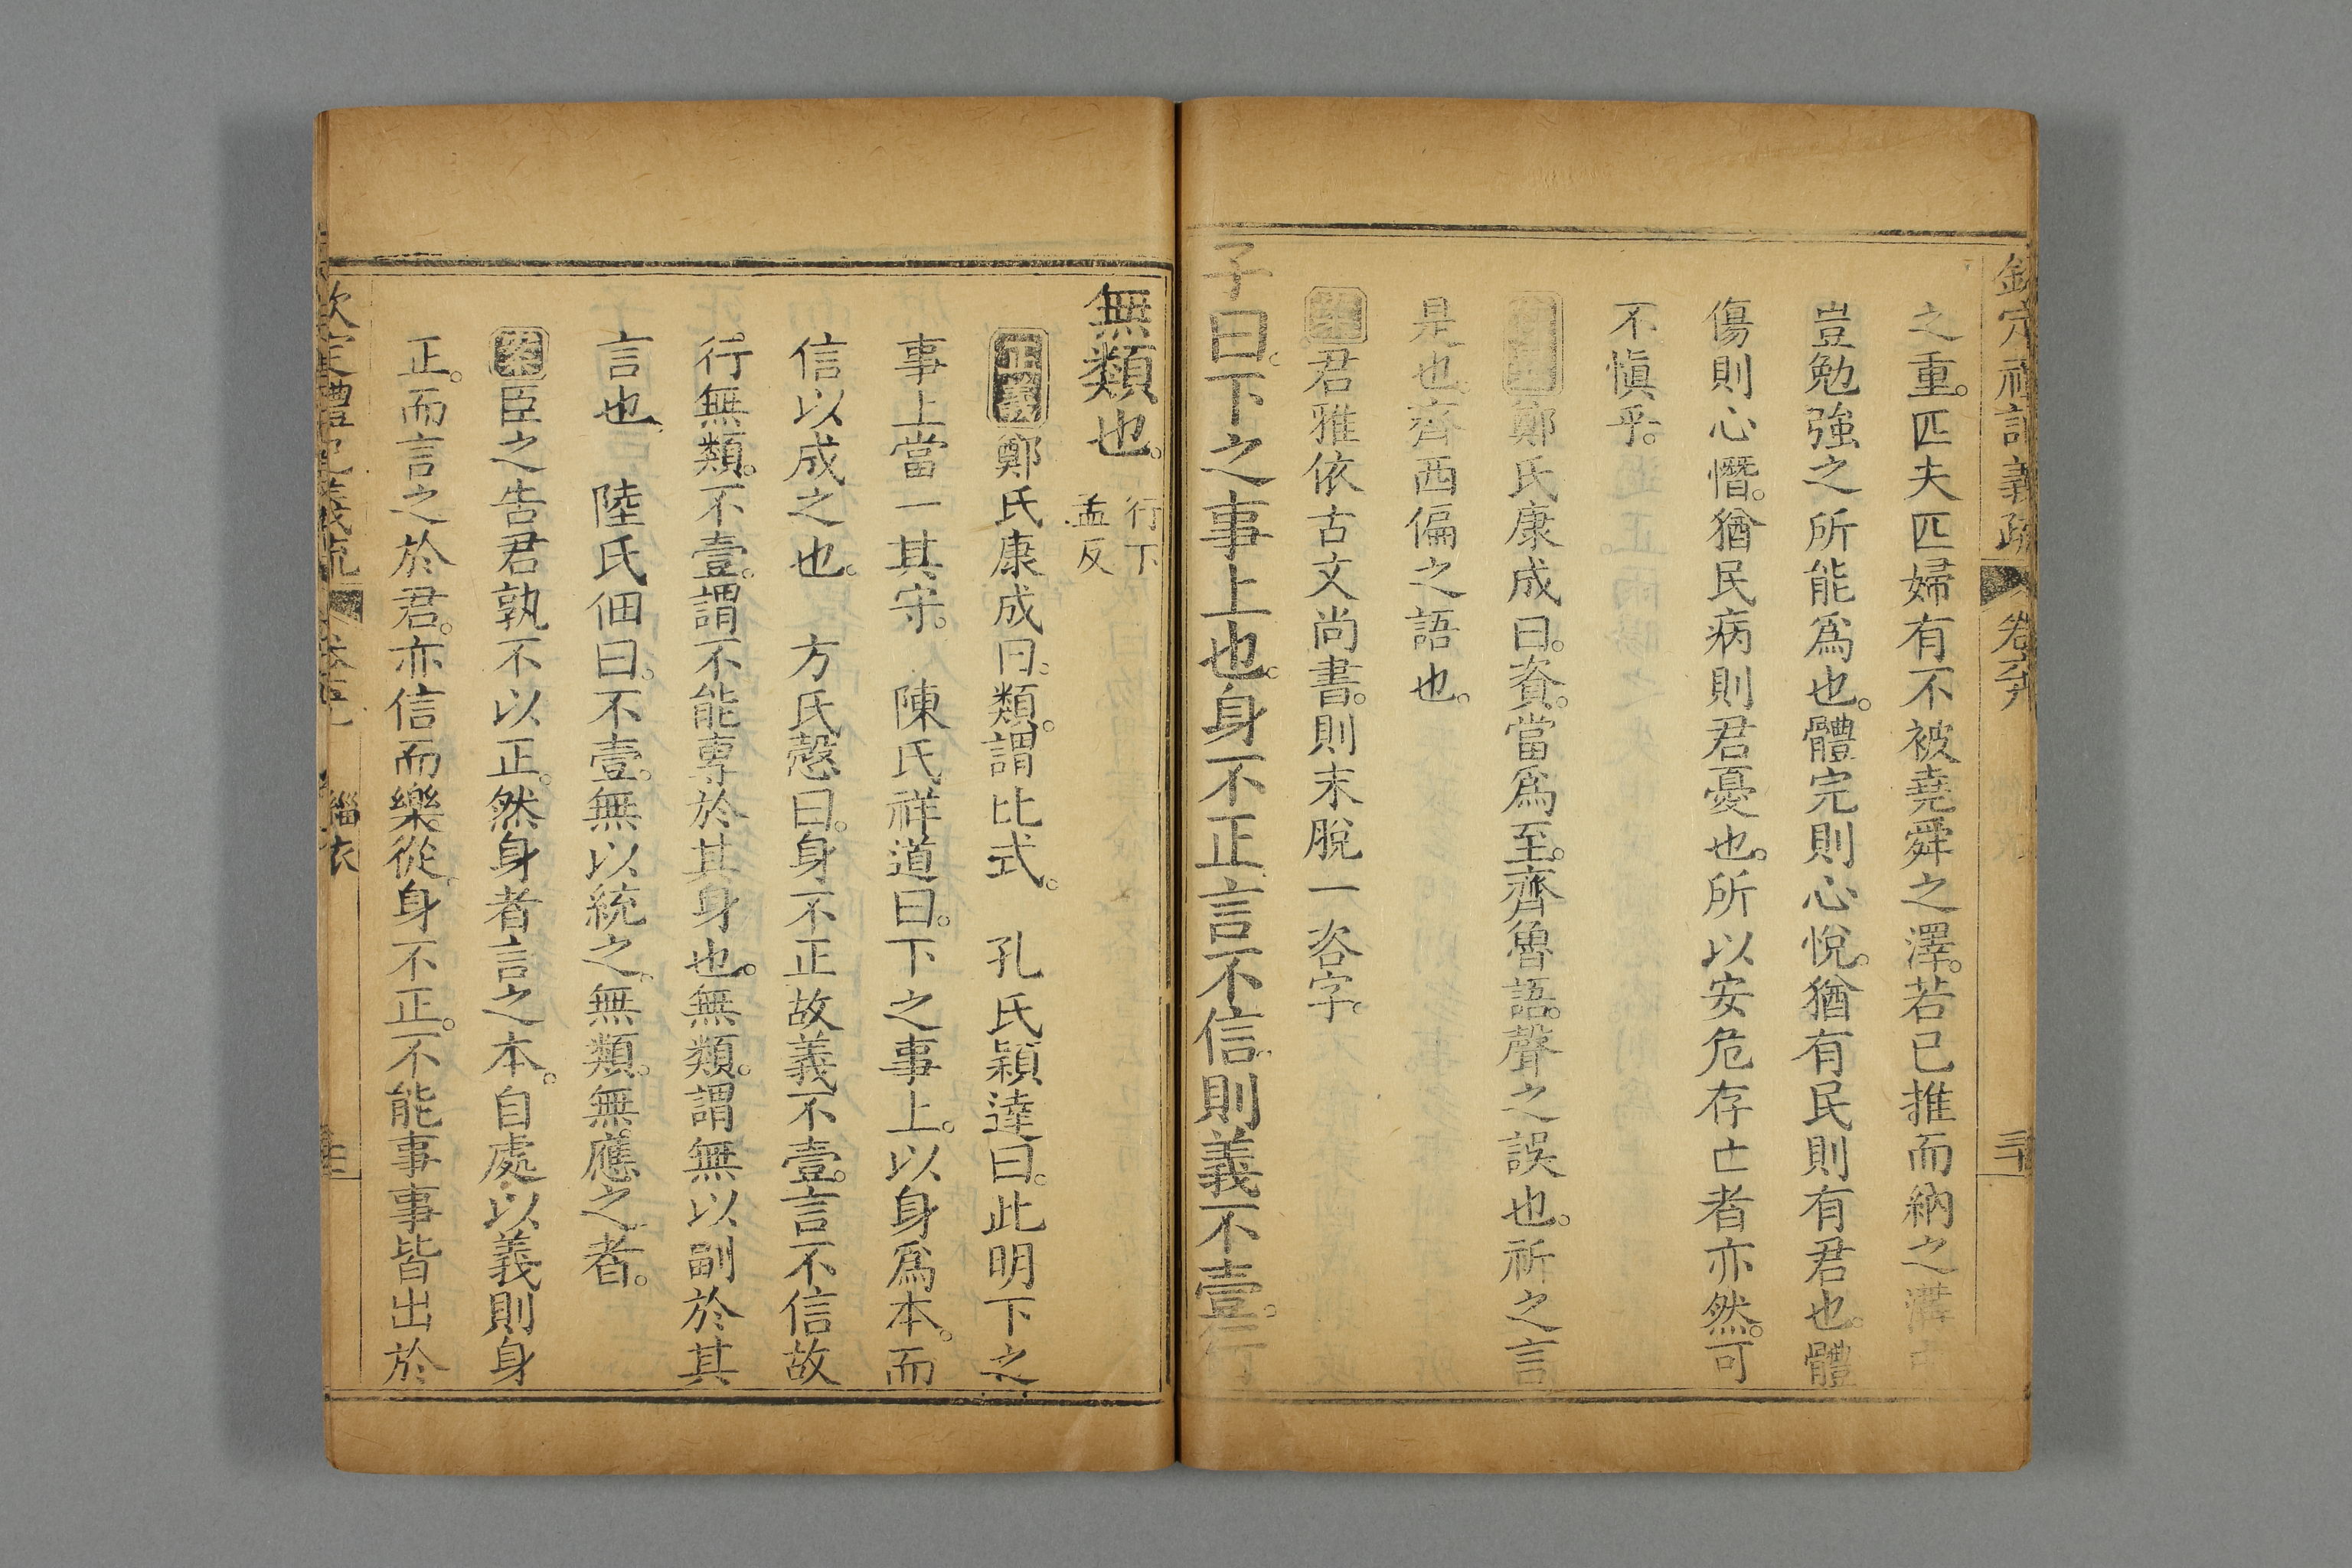 欽定禮記義疏 卷 三十
之重。匹夫匹婦有不被堯舜之澤。若已推而納之溝中
豈勉強之所能爲也。體完則心悅。猶有民則有君也。體
傷則心憯。猶民病則君憂也。所以安危存亡者亦然。可
不愼乎。
鄭氏康成曰。資。當爲至。齊魯語。聲之誤也。祈之言
是也。齊西偏之語也。
案君雅依古文尚書。則末脫一咨字。
子曰。下之事上也。身不正。言不信。則義不壹。行
無類也。行下孟反
正義鄭氏康成曰。類。謂比式。 孔氏穎達曰。此明下之
事上當一其守。 陳氏祥道曰。下之事上。以身爲本。而
信以成之也。 方氏慤曰。身不正故義不壹。言不信故
行無類。不壹。謂不能專於其身也。無類。謂無以副於其
言也。 陸氏佃曰。不壹。無以統之。無類。無應之者。
案臣之告君孰不以正。然身者言之本。自處以義則身
正。而言之於君。亦信而樂從。身不正。不能事事皆出於
欽定禮記義疏 緇衣